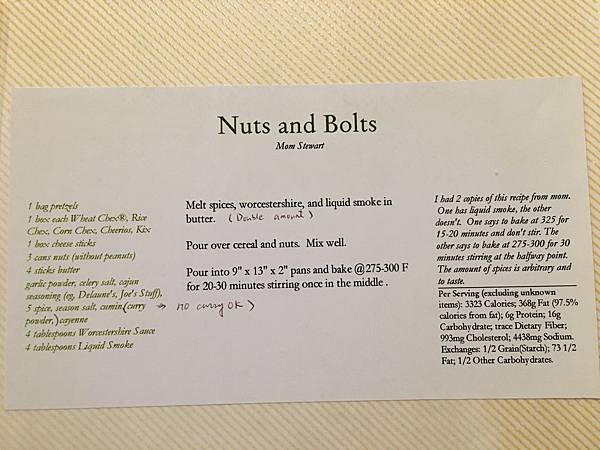 Nuts and Bolts
Mom Stewart
1 bag pretzels
1 box each Wheat Chex®, Rice
Chex, Corn Chex, Cheerios, Kix
1 box cheese sticks
3 cans nuts (without peanuts)
4 sticks butter
garlic powder, celery salt, cajun
seasoning (eg, Delaune's, Joe's Stuff),
5 spice, season salt, cumin, (curry → no curry OK)
powder,) cayenne
4 tablespoons Worcestershire Sauce
4 tablespoons Liquid Smoke
Melt spices, worcestershire, and liquid smoke in
butter. (Double amount)
Pour over cereal and nuts. Mix well.
Pour into 9" x 13" x 2" pans and bake @275-300 F
for 20-30 minutes stirring once in the middle .
I had 2 copies of this recipe from mom.
One has liquid smoke, the other
doesn't. One says to bake at 325 for
15-20 minutes and don't stir. The
other says to bake at 275-300 for 30
minutes stirring at the halfway point.
The amount of spices is arbitrary and
to taste.
Per Serving (excluding unknown
items): 3323 Calories; 368g Fat (97.5%
calories from fat); 6g Protein; 16g
Carbohydrate; trace Dietary Fiber;
993mg Cholesterol; 4438mg Sodium.
Exchanges: 1/2 Grain(Starch); 73 1/2
Fat; 1/2 Other Carbohydrates.